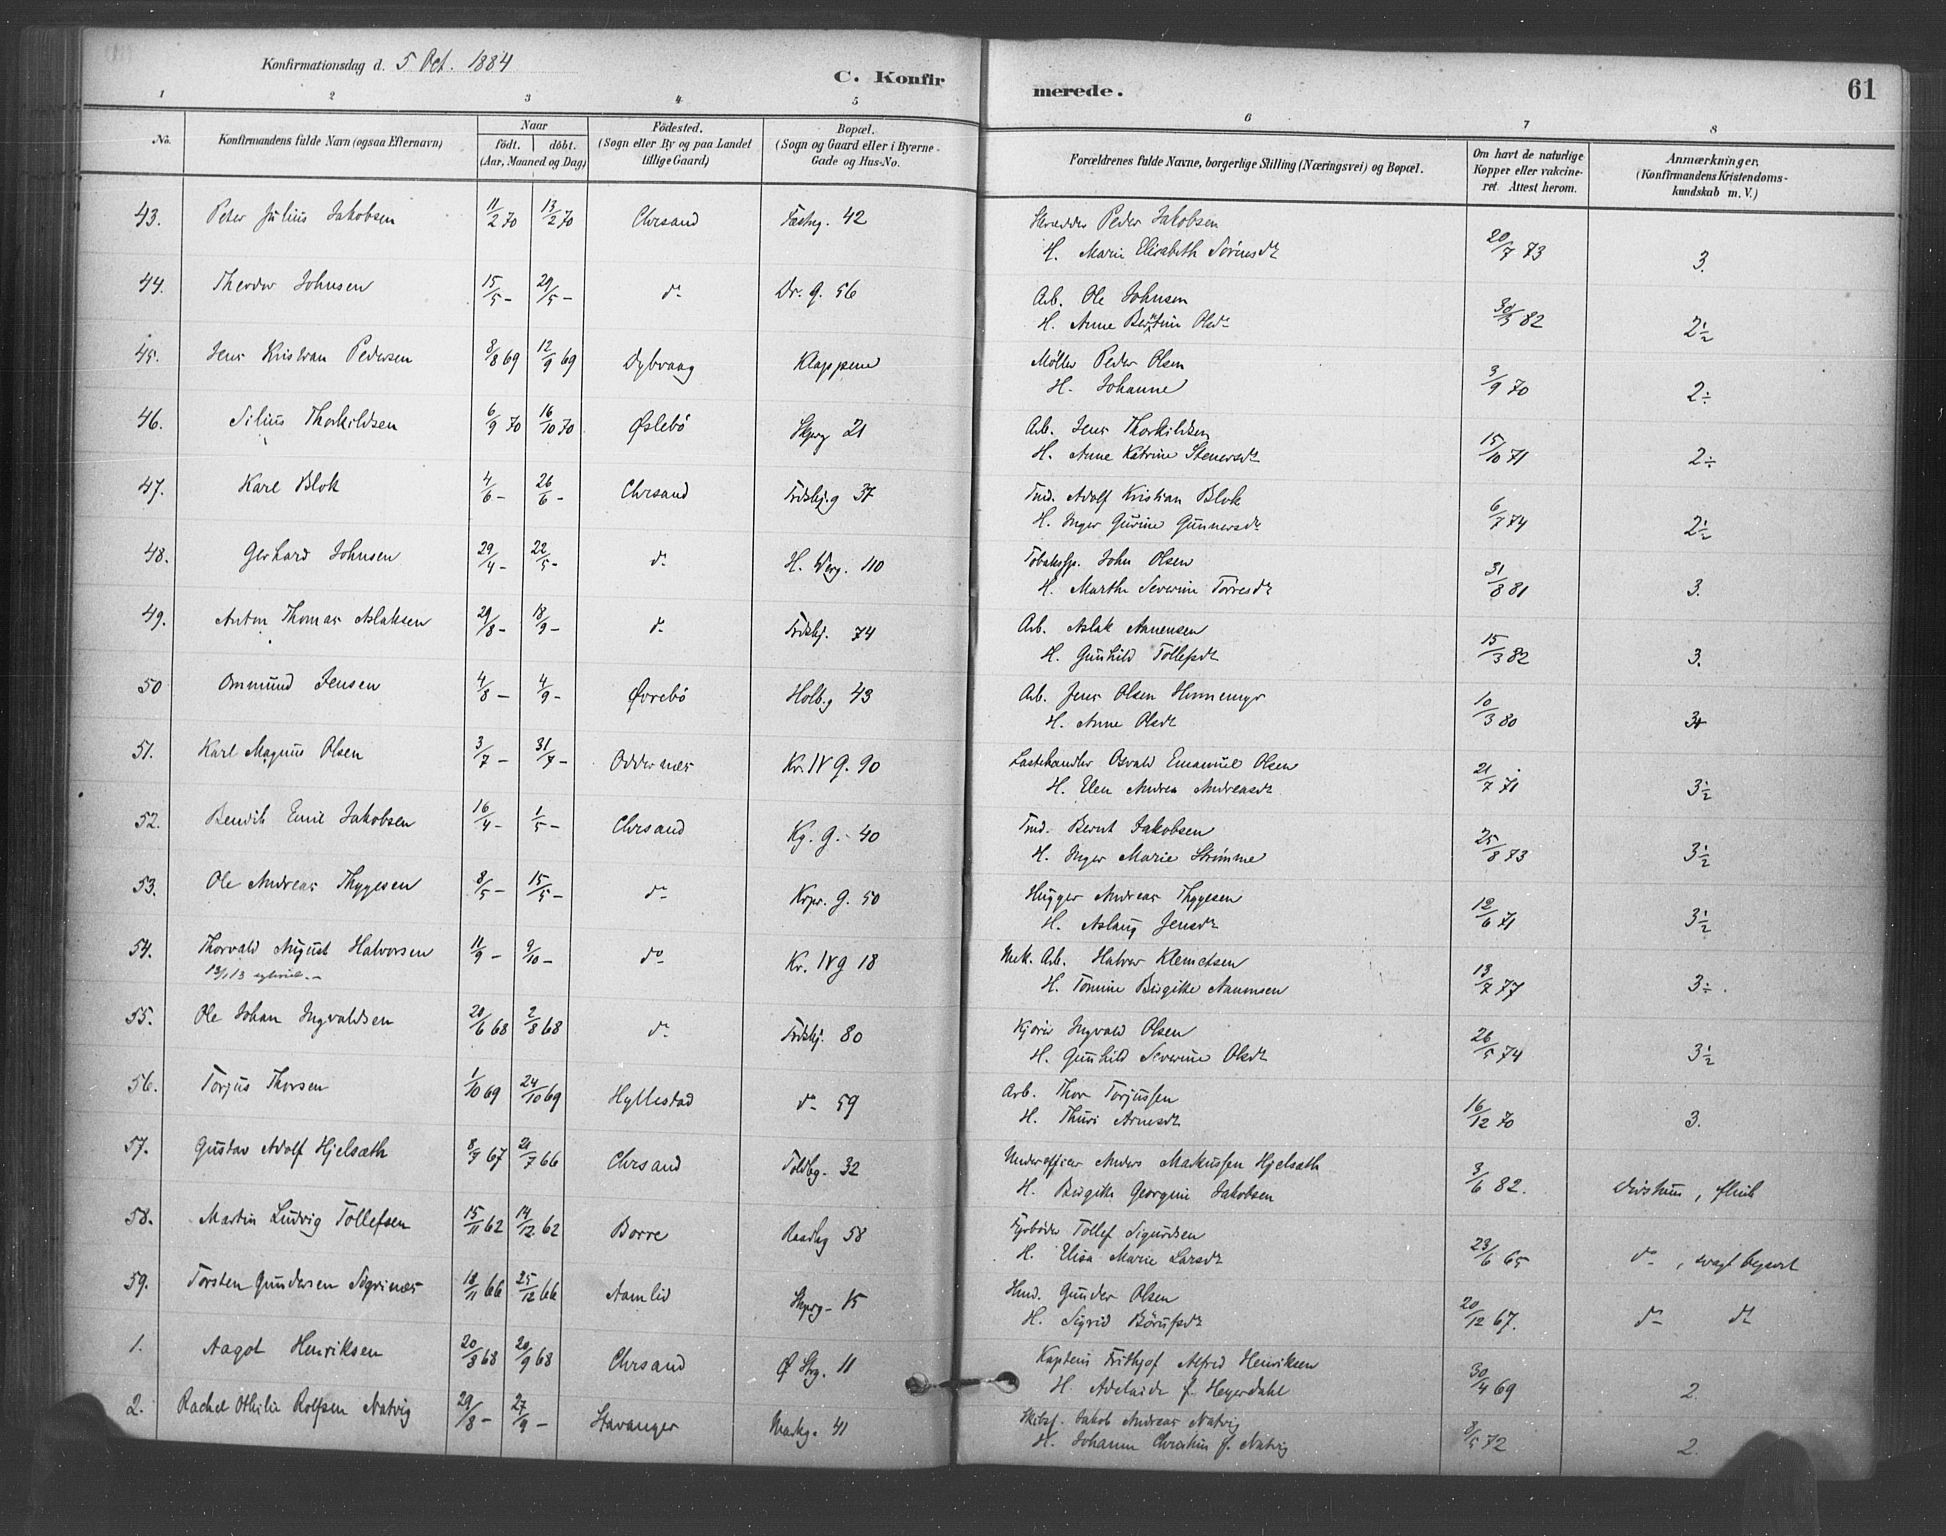 Konfirmationsdag d. 5 Oct. 1884
C. Konfirmerede. 61
1 2 3 4 5 6 7 8
No. Konfirmandens fulde Navn (ogsaa Efternavn) Naar födt. döbt. (Aar, Maaned og Dag) Födested. (Sogn eller By og paa Landet tillige Gaard) Bopæl. (Sogn og Gaard eller i Byerne Gade og Hus-No. Forældrenes fulde Navne, borgerlige Stilling (Næringsvei) og Bopæl. Om havt de naturlige Kopper eller vakcineret. Attest herom. Anmærkninger. (Konfirmandens Kristendomskundskab m. V.)
43. Peter Julius Jakobsen 11/2 70 13/2 70 Chrsand Fæstng. 42 Skrædder Peder Jakobsen 20/7 73 3.
H. Marie Elisabeth Sörensdr
44. Theodor Johnsen 15/5 - 29/5 - do Dr. g. 56 Arb. Ole Johnsen 30/3 82 2½
H. Anne Bertine Olsdr
45. Jens Kristian Pedersen 8/8 69 12/9 69 Dybvaag Klappene Möller Peder Olsen 3/9 70 2÷
H. Johanne
46. Silius Thorkildsen 6/9 70 16/10 70 Øslebö Skprg 21 Arb. Jens Thorkildsen 15/10 71 2÷
H. Anne Katrine Stenersdr
47. Karl Blok 4/6 - 26/6 - Chrsand Frdskj.g 37 Tmd. Adolf Kristian Blok 6/7 74 2½
H. Inger Gurine Gunnersdr
48. Gerhard Johnsen 29/4 - 22/5 - do H. Werg. 110 Tobakssp. John Olsen 31/8 81 3.
H. Marthe Severine Torresdr
49. Anton Thomas Aslaksen 29/8 - 18/9 - do Frdskj. 74 Arb. Aslak Aanensen 15/3 82 3.
H. Gunhild Tollefsdr
50 Ommund Jensen 4/8 - 4/9 - Øvrebö Holb.g 43 Arb. Jens Olsen Honnemyr 10/3 80 3+
H. Anne Olsdr
51. Karl Magnus Olsen 3/7 - 31/7 - Oddernes Kr. IV g. 90 Lastehandler Osvald Emanuel Olsen 21/7 71 3½
H. Elen Andrea Andreasdr
52. Bendik Emil Jakobsen 16/4 - 1/5 - Chrsand Kg. g. - 40 Tmd. Bernt Jakobsen 25/8 73 3½
H. Inger Marie Strömme
53. Ole Andreas Thygesen 8/5 - 15/5 - do Krpr. g. 50 Hugger Andreas Thygesen 12/6 71 3½
H. Aslaug Jensdr
54. Thorvald August Halvorsen 11/9 - 9/10 - do Kr. IV g 18 Mek. Arb. Halvor Klemetsen 13/7 77 3÷.
13/1 13
H. Tomine Birgitte Aanonsen
55. Ole Johan Ingvaldsen 20/6 68 2/8 68 do Frdskj. 80 Ingvald Olsen 26/5 74 3½
H. Gunhild Severine Olsdr
56. Torjus Thorsen 1/10 69 24/10 69 Hyllestad do 59 Arb. Thor Torjussen 16/12 70 3.
H. Thuri Arnesdr
57. Gustav Adolf Hjelsæth 8/7 67 21/7 66 Chrsand Toldbg. 32 Underofficer Anders Markussen Hjelsæth 3/6 82. Dövstum, flink
H. Birgitte Georgine Jakobsen
58. Martin Ludvig Tollefsen 15/11 62 14/12 62 Borre Raadhg 58 Fyrböder Tollef Sigurdsen 23/6 65 do, svagt begavet
H. Elisa Marie Larsdr
59. Torsten Gundersen 18/11 66 25/12 66 Aamlid Skprg. 15 Hmd. Gunder Olsen 20/12 67. do do
H. Sigrid Börufsdr
1. Aagot Henriksen 20/8 68 20/9 68 Chrsand Ø Strg. 11 Kaptein Frithjof Alfred Henriksen 30/4 69 2.
H. Adelaide f. Heyerdahl
2. Rachel Othilie Rolfsen Natvig 29/8 - 27/9 - Stavanger Markg. 41 Skibsf. Jakob Andreas Natvig 8/5 72 2.
H. Johanne Christine f. Natvig